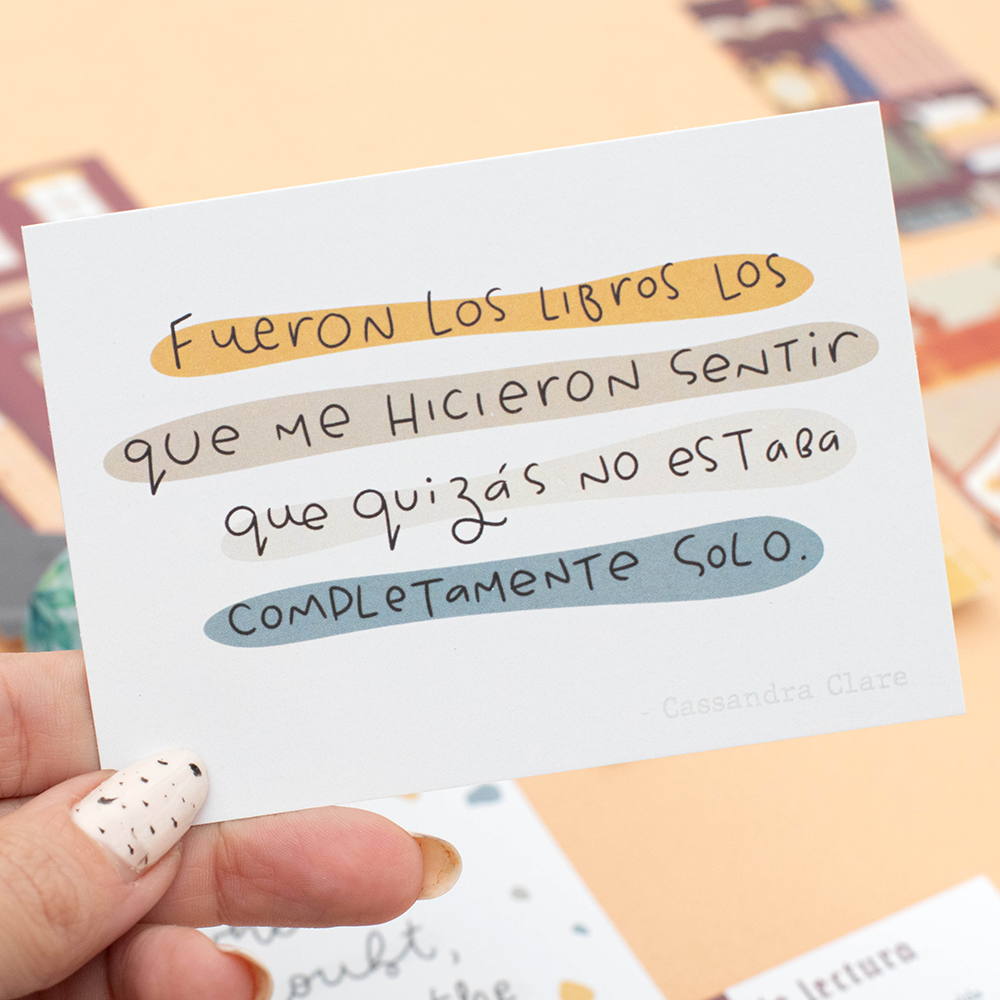 Fueron los libros los
que me hicieron sentir
que quizás no estaba
completamente solo.
- Cassandra Clare
oubt,
the
lectura